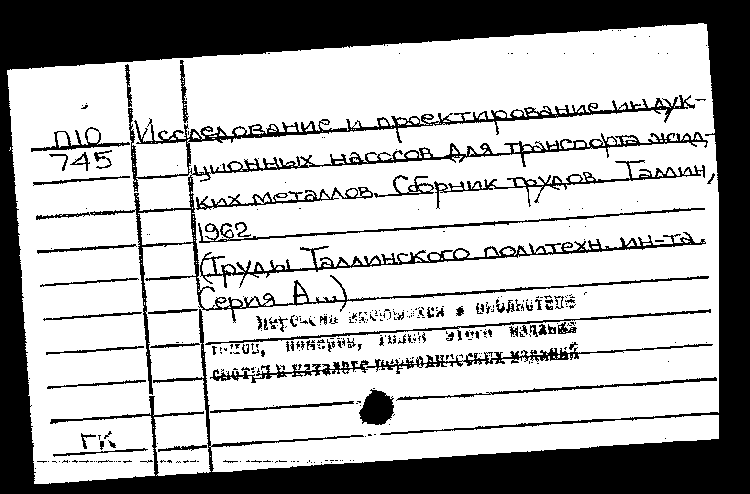 П10
745
Исследование и проектирование индук-
ционных насосов для транспорта жид-
ких металлов. Сборник трудов. Таллин,
1962.
(Труды Таллинского политехн. ин-та.
Серия А...)
Перечень имеющихся в библиотеке
томов, номеров, годов этого издания
смотри в каталоге периодических изданий
ГК